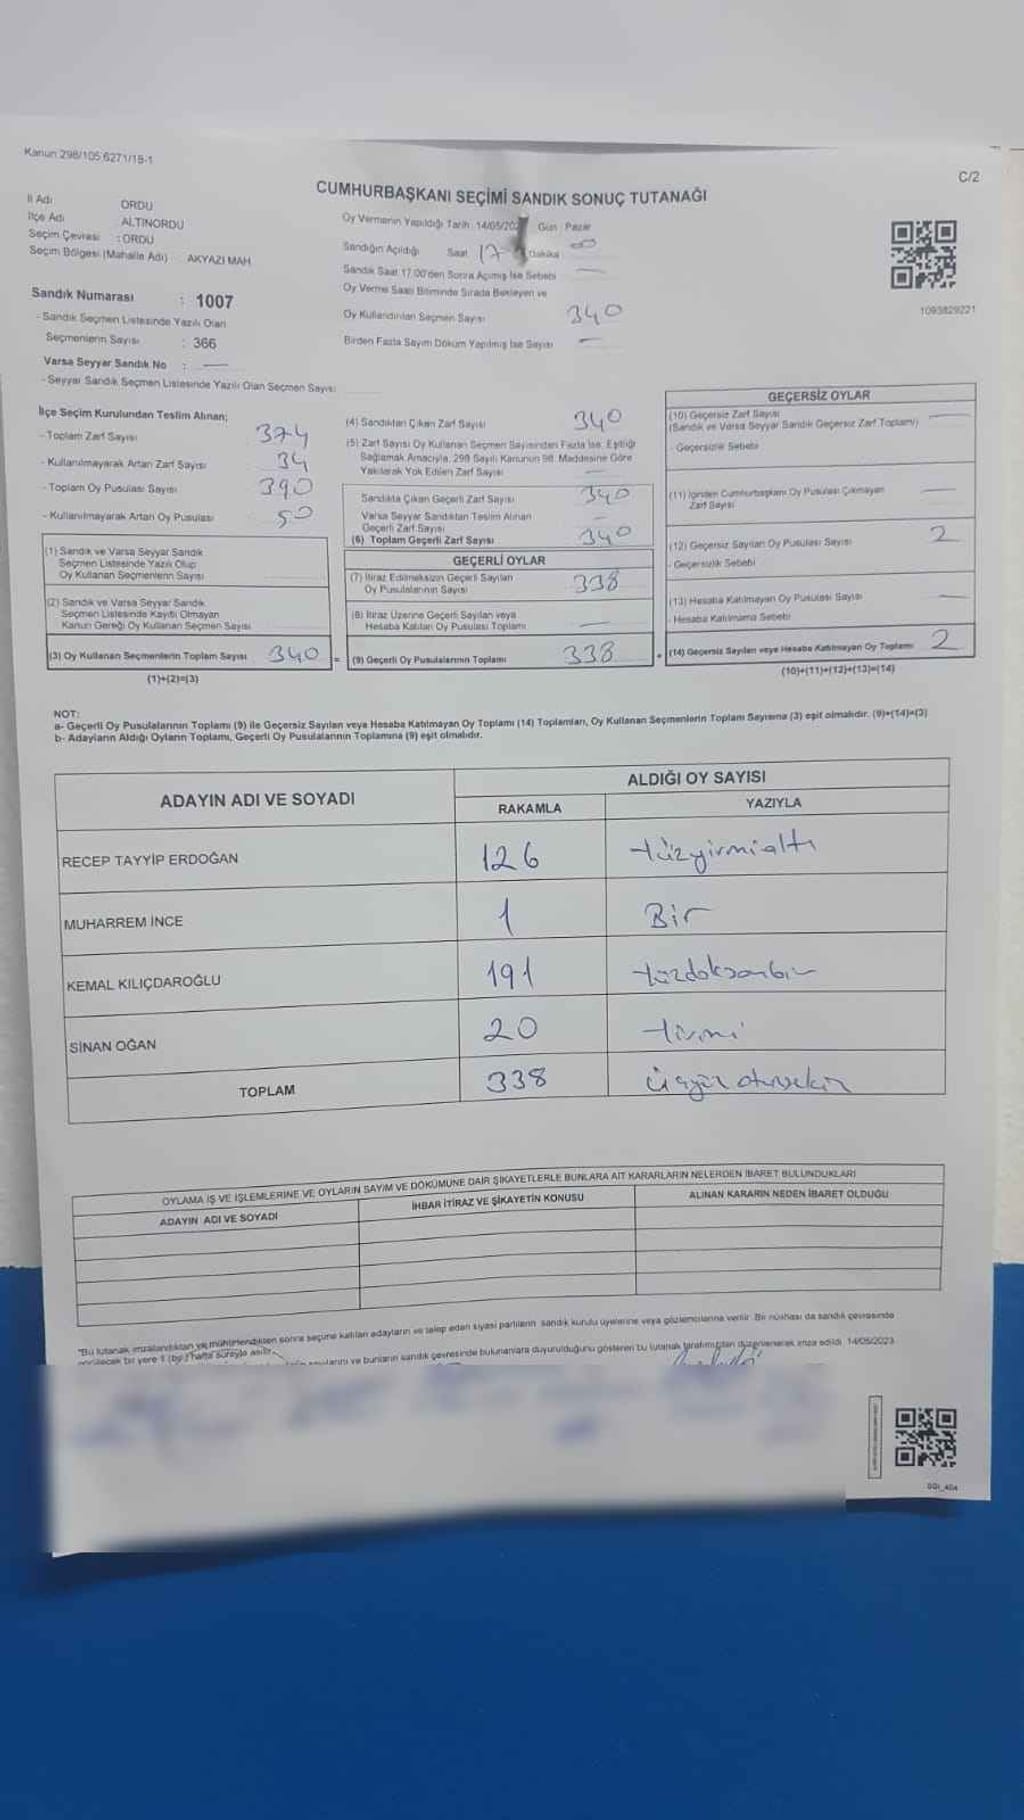 Kanun:298/105;6271/18-1
C/2
CUMHURBAŞKANI SEÇİMİ SANDIK SONUÇ TUTANAĞI
İl Adı ORDU
İlçe Adı ALTINORDU
Seçim Çevresi : ORDU
Seçim Bölgesi (Mahalle Adı) AKYAZI MAH.
Sandık Numarası : 1007
- Sandık Seçmen Listesinde Yazılı Olan
Seçmenlerin Sayısı : 366
Varsa Seyyar Sandık No : —
- Seyyar Sandık Seçmen Listesinde Yazılı Olan Seçmen Sayısı:
Oy Vermenin Yapıldığı Tarih: 14/05/202 Gün : Pazar
Sandığın Açıldığı Saat 17 Dakika 00
Sandık Saat 17.00'den Sonra Açılmış İse Sebebi —
Oy Verme Saati Bitiminde Sırada Bekleyen ve
Oy Kullandırılan Seçmen Sayısı 340
Birden Fazla Sayım Döküm Yapılmış İse Sayısı —
1093829221
İlçe Seçim Kurulundan Teslim Alınan;
- Toplam Zarf Sayısı 374
- Kullanılmayarak Artan Zarf Sayısı 34
- Toplam Oy Pusulası Sayısı 390
- Kullanılmayarak Artan Oy Pusulası 50
(1) Sandık ve Varsa Seyyar Sandık
Seçmen Listesinde Yazılı Olup
Oy Kullanan Seçmenlerin Sayısı
(2) Sandık ve Varsa Seyyar Sandık
Seçmen Listesinde Kayıtlı Olmayan
Kanun Gereği Oy Kullanan Seçmen Sayısı
(3) Oy Kullanan Seçmenlerin Toplam Sayısı 340 =
(1)+(2)=(3)
(4) Sandıktan Çıkan Zarf Sayısı 340
(5) Zarf Sayısı Oy Kullanan Seçmen Sayısından Fazla İse, Eşitliği
Sağlamak Amacıyla, 298 Sayılı Kanunun 98. Maddesine Göre
Yakılarak Yok Edilen Zarf Sayısı —
Sandıkta Çıkan Geçerli Zarf Sayısı 340
Varsa Seyyar Sandıktan Teslim Alınan
Geçerli Zarf Sayısı —
(6) Toplam Geçerli Zarf Sayısı 340
GEÇERLİ OYLAR
(7) İtiraz Edilmeksizin Geçerli Sayılan
Oy Pusulalarının Sayısı 338
(8) İtiraz Üzerine Geçerli Sayılan veya
Hesaba Katılan Oy Pusulası Toplamı —
(9) Geçerli Oy Pusulalarının Toplamı 338 +
GEÇERSİZ OYLAR
(10) Geçersiz Zarf Sayısı —
(Sandık ve Varsa Seyyar Sandık Geçersiz Zarf Toplamı)
- Geçersizlik Sebebi
(11) İçinden Cumhurbaşkanı Oy Pusulası Çıkmayan
Zarf Sayısı —
(12) Geçersiz Sayılan Oy Pusulası Sayısı 2
- Geçersizlik Sebebi
(13) Hesaba Katılmayan Oy Pusulası Sayısı —
- Hesaba Katılmama Sebebi
(14) Geçersiz Sayılan veya Hesaba Katılmayan Oy Toplamı 2
(10)+(11)+(12)+(13)=(14)
NOT:
a- Geçerli Oy Pusulalarının Toplamı (9) ile Geçersiz Sayılan veya Hesaba Katılmayan Oy Toplamı (14) Toplamları, Oy Kullanan Seçmenlerin Toplam Sayısına (3) eşit olmalıdır. (9)+(14)=(3)
b- Adayların Aldığı Oyların Toplamı, Geçerli Oy Pusulalarının Toplamına (9) eşit olmalıdır.
ADAYIN ADI VE SOYADI
ALDIĞI OY SAYISI
RAKAMLA YAZIYLA
RECEP TAYYİP ERDOĞAN 126 Yüzyirmialtı
MUHARREM İNCE 1 Bir
KEMAL KILIÇDAROĞLU 191 Yüzdoksanbir
SİNAN OĞAN 20 Yirmi
TOPLAM 338 Üçyüz otuzsekiz
OYLAMA İŞ VE İŞLEMLERİNE VE OYLARIN SAYIM VE DÖKÜMÜNE DAİR ŞİKAYETLERLE BUNLARA AİT KARARLARIN NELERDEN İBARET BULUNDUKLARI
ADAYIN ADI VE SOYADI İHBAR İTİRAZ VE ŞİKAYETİN KONUSU ALINAN KARARIN NEDEN İBARET OLDUĞU
"Bu tutanak imzalandıktan ve mühürlendikten sonra seçime katılan adayların ve talep eden siyasi partilerin sandık kurulu üyelerine veya gözlemcilerine verilir. Bir nüshası da sandık çevresinde
görülecek bir yere 1 (bir) hafta süreyle asılır.
ve bunların sandık çevresinde bulunanlara duyurulduğunu gösteren bu tutanak tarafımızdan düzenlenerek imza edildi. 14/05/2023